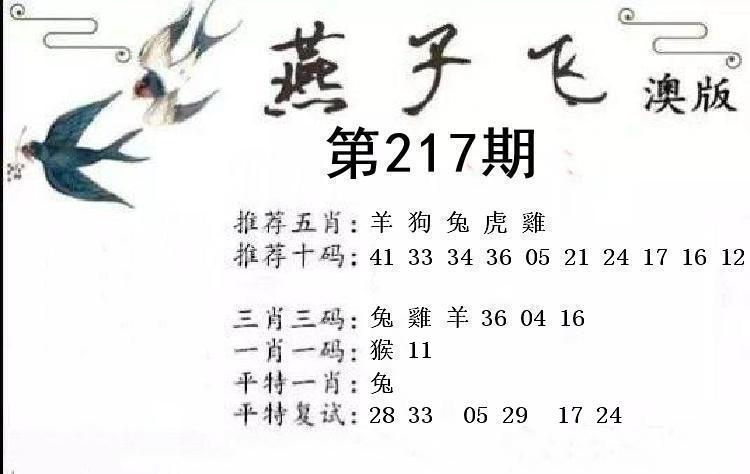 燕子飞 澳版
第217期
推荐五肖: 羊 狗 兔 虎 雞
推荐十码: 41 33 34 36 05 21 24 17 16 12
三肖三码: 兔 雞 羊 36 04 16
一肖一码: 猴 11
平特一肖: 兔
平特复试: 28 33 05 29 17 24